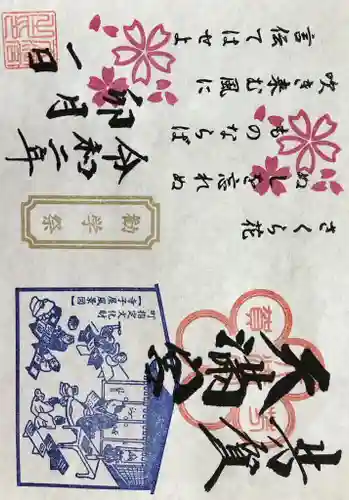 さくら花
ぬしを忘れぬ
ものならば
吹き来む風に
言伝てはせよ
天満宮
勧学祭
令和二年
卯月
一日
町指定文化財
【寺子屋風景図】